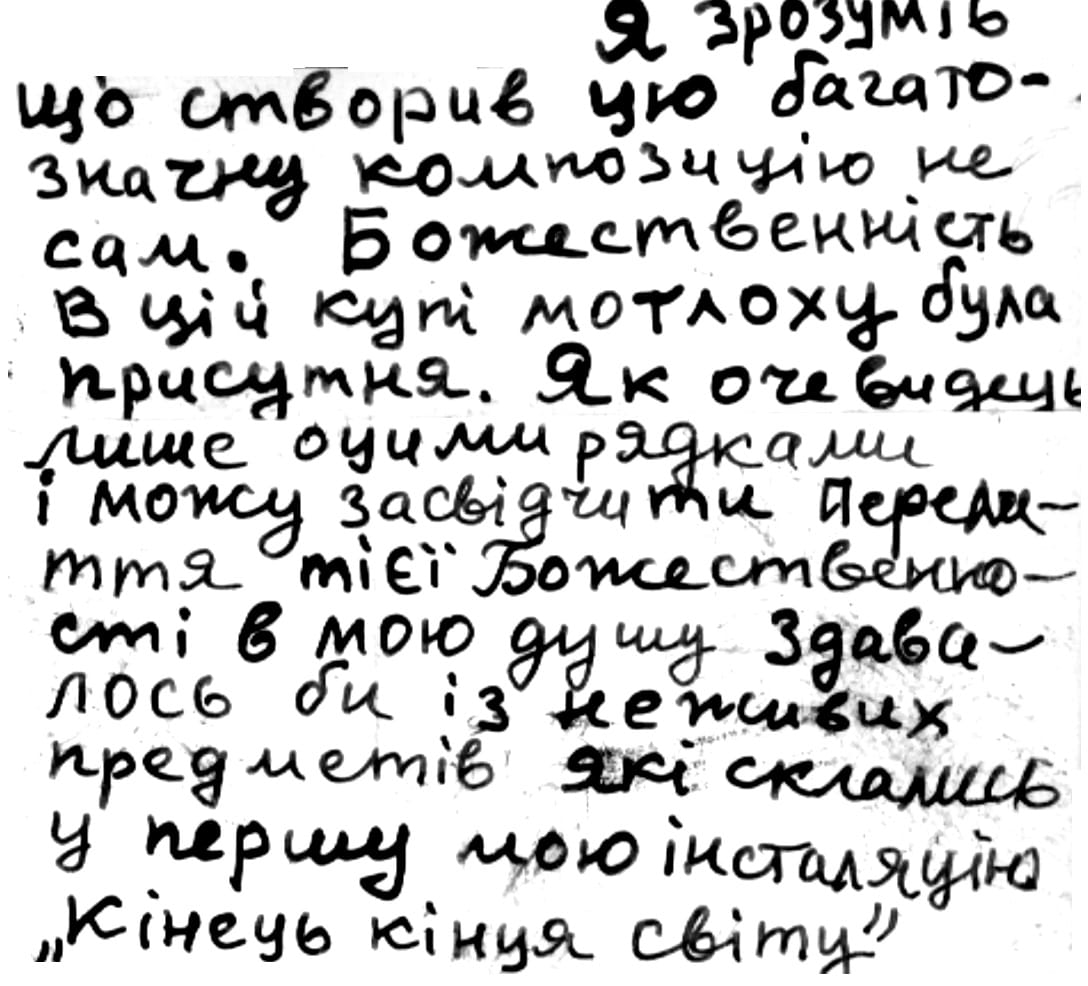 Я зрозумів
що створив цю багато-
значну композицію не
сам. Божественність
в цій купі мотлоху була
присутня. Як очевидець
лише оцими рядками
і можу засвідчити перели-
ття тієї Божественно-
сті в мою душу Здава-
лось би із неживих
предметів які склались
у першу мою інсталяцію
„Кінець кінця світу”